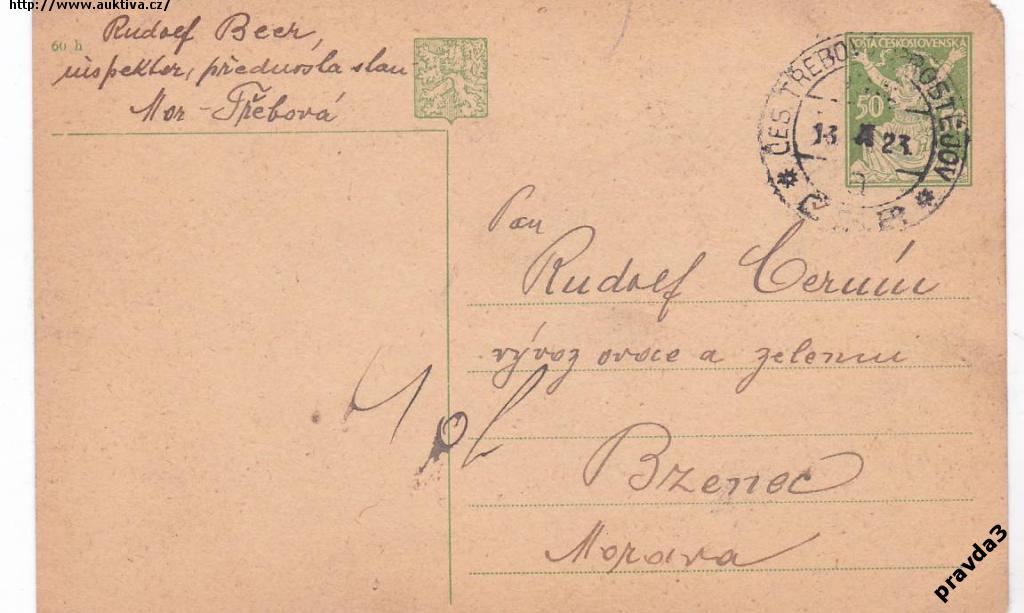 http://www.auktiva.cz/
60 h
Rudolf Beer,
inspektor, přednosta stan
Mor-Třebová
POŠTA ČESKOSLOVENSKÁ
50
ČES. TŘEBO PROSTĚJOV
23
Pan
Rudolf Černín
vývoz ovoce a zeleniny
Bzenec
Morava
pravda3